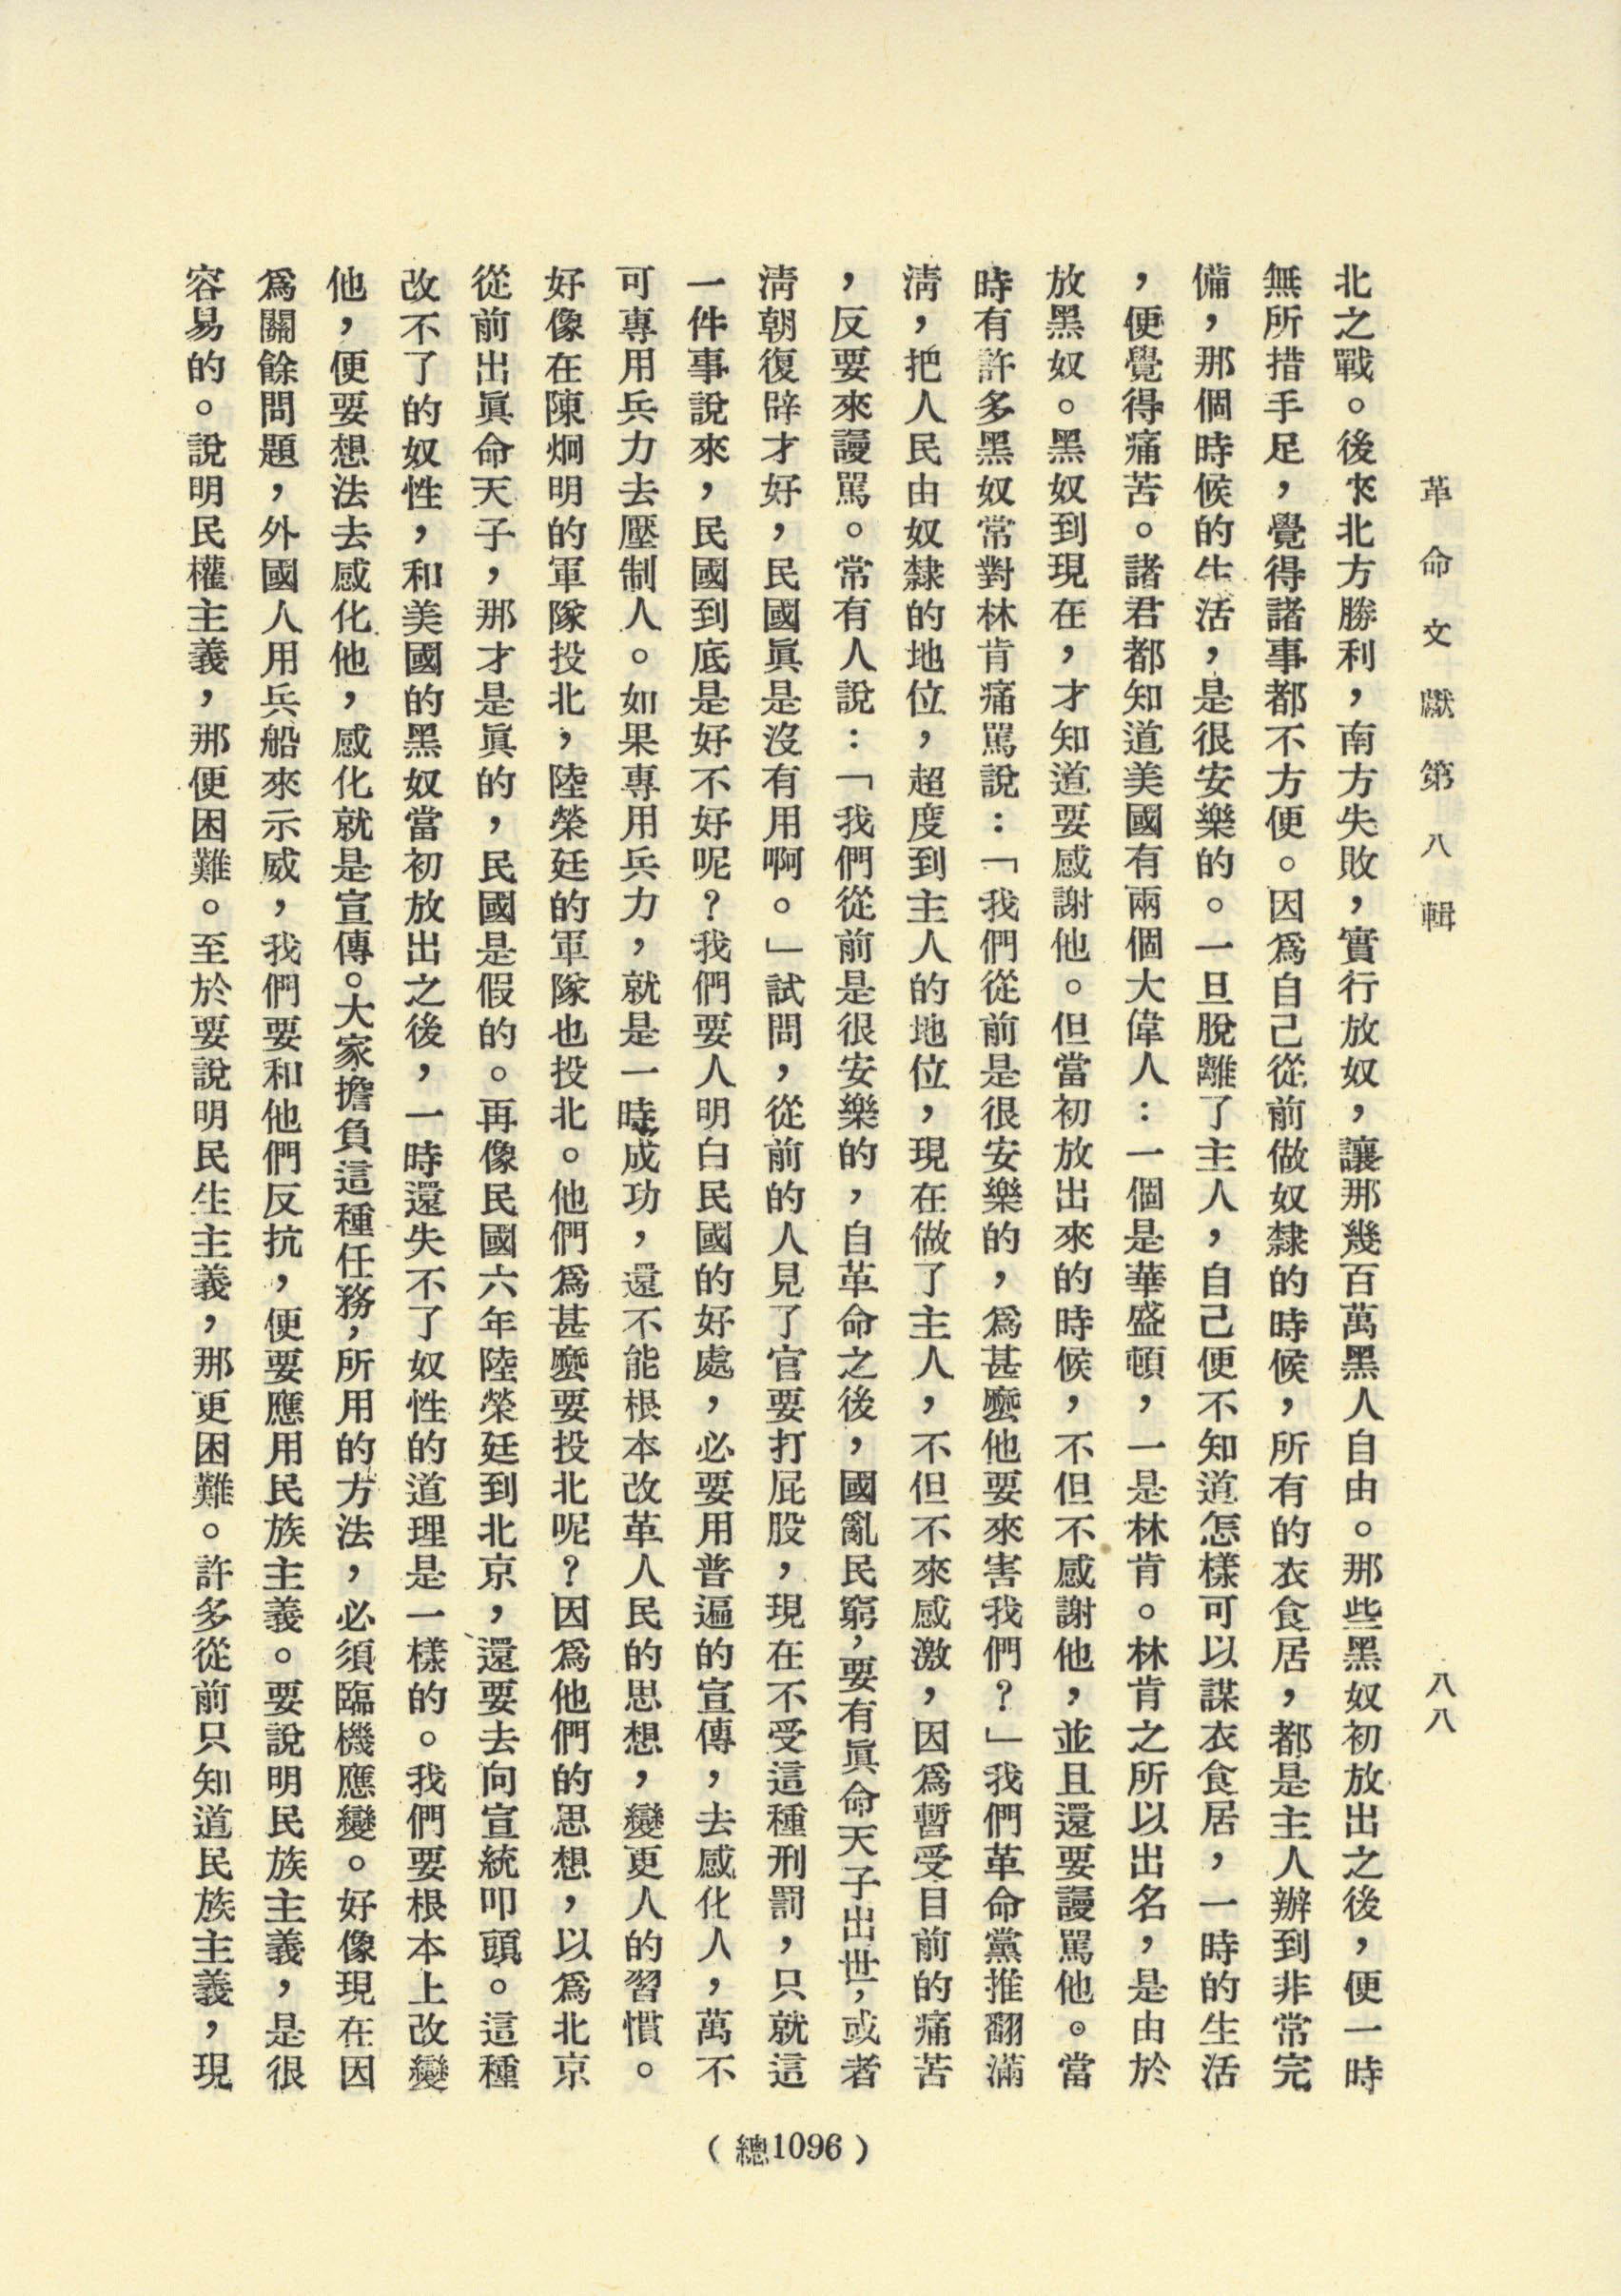 革命文獻第八輯
八八
北之戰。後來北方勝利，南方失敗，實行放奴，讓那幾百萬黑人自由。那些黑奴初放出之後，便一時
無所措手足，覺得諸事都不方便。因爲自己從前做奴隸的時候，所有的衣食居，都是主人辦到非常完
備，那個時候的生活，是很安樂的。一旦脫離了主人，自己便不知道怎樣可以謀衣食居，一時的生活
，便覺得痛苦。諸君都知道美國有兩個大偉人：一個是華盛頓，一是林肯。林肯之所以出名，是由於
放黑奴。黑奴到現在，才知道要感謝他。但當初放出來的時候，不但不感謝他，並且還要謾駡他。當
時有許多黑奴常對林肯痛駡說：「我們從前是很安樂的，爲甚麽他要來害我們？」我們革命黨推翻滿
淸，把人民由奴隸的地位，超度到主人的地位，現在做了主人，不但不來感激，因爲暫受目前的痛苦
，反要來謾駡。常有人說：「我們從前是很安樂的，自革命之後，國亂民窮，要有眞命天子出世，或者
淸朝復辟才好，民國眞是沒有用啊。」試問，從前的人見了官要打屁股，現在不受這種刑罰，只就這
一件事說來，民國到底是好不好呢？我們要人明白民國的好處，必要用普遍的宣傳，去感化人，萬不
可專用兵力去壓制人。如果專用兵力，就是一時成功，還不能根本改革人民的思想，變更人的習慣。
好像在陳炯明的軍隊投北，陸榮廷的軍隊也投北。他們爲甚麽要投北呢？因爲他們的思想，以爲北京
從前出眞命天子，那才是眞的，民國是假的。再像民國六年陸榮廷到北京，還要去向宣統叩頭。這種
改不了的奴性，和美國的黑奴當初放出之後，一時還失不了奴性的道理是一樣的。我們要根本上改變
他，便要想法去感化他，感化就是宣傳。大家擔負這種任務，所用的方法，必須臨機應變。好像現在因
爲關餘問題，外國人用兵船來示威，我們要和他們反抗，便要應用民族主義。要說明民族主義，是很
容易的。說明民權主義，那便困難。至於要說明民生主義，那更困難。許多從前只知道民族主義，現
（總1096）